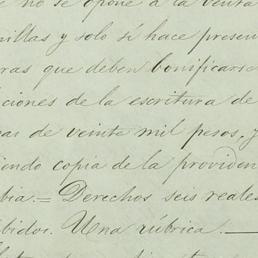 no se opone à la venta
nillas y solo sí hace presen
ras que deben bonificarse
ciones de la escritura de
de veinte mil pesos, y
iendo copia de la providen
bia.= Derechos seis reales
bidos. Una rúbrica.—